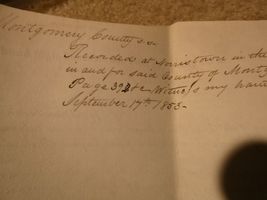 Montgomery County ss.
Recorded at Norristown in the
in and for said County of Montg
Page 39 &c Witness my han
September 17th 1853-